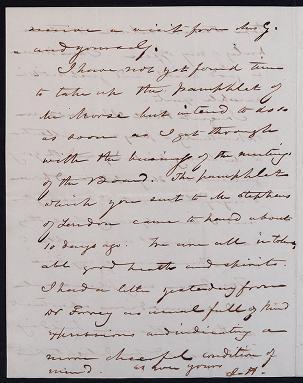 receive a visit from Mrs G.
and yourself.
I have not yet found time
to take up the pamphlet of
Mr Morse but intend to do so
as soon as I get through
with the business of the meeting
of the Board. The pamphlet
which you sent to Mr Stephens
of London came to hand about
10 days ago. We are all in toler
able good health and spirits.
I had a letter yesterday from
Dr Torrey as usual full of kind
expressions and indicating a
more cheerful condition of
mind. as ever yours
J. H.